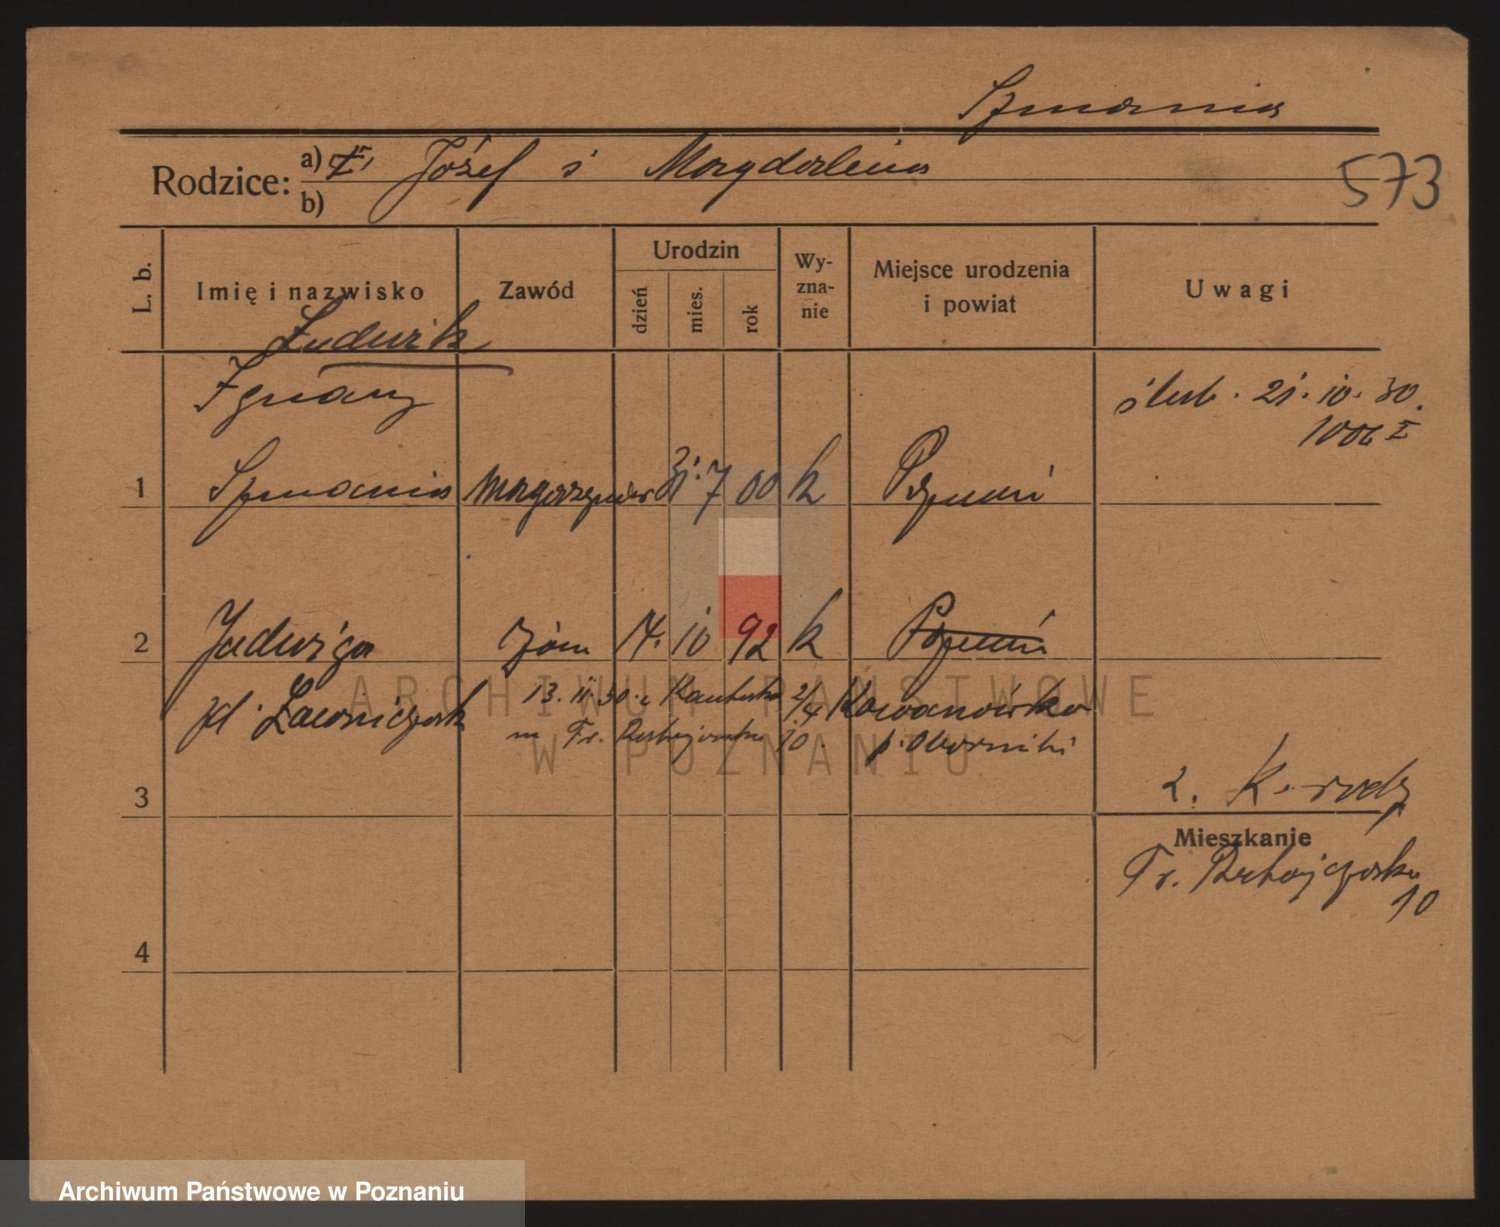 Szmania
Rodzice: a) Józef i Magdalena
b)
573
L. b.
Imię i nazwisko
Zawód
Urodzin
dzień
mies.
rok
Wy-
zna-
nie
Miejsce urodzenia
i powiat
Uwagi
Ludwik
Ignacy
ślub. 21. 10. 30.
1006 I
1 Szmania magazynier 31. 7 00 k Poznań
2 Jadwiga żona 14. 10 92 k Poznań
zd. Ławniczak 13. 11. 30. z 2/4 Kowanówko
m Fr. Ratajczaka 10. p. Oborniki
3
2. K. rodz
Mieszkanie
Fr. Ratajczaka
10
4
ARCHIWUM PAŃSTWOWE
W POZNANIU
Archiwum Państwowe w Poznaniu